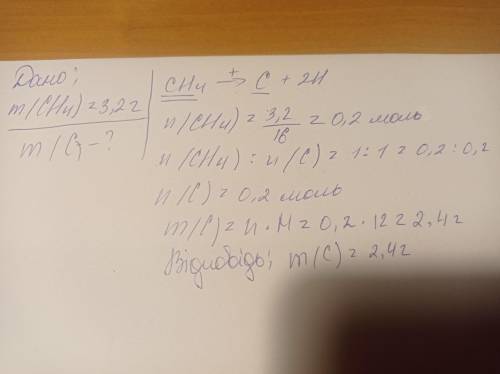 Дано:
m(CH4) = 3,2 г
m(C) - ?
CH4 →t C + 2H
n(CH4) = 3,2/16 = 0,2 моль
n(CH4) : n(C) = 1:1 = 0,2 : 0,2
n(C) = 0,2 моль
m(C) = n • M = 0,2 • 12 = 2,4 г
Відповідь: m(C) = 2,4 г